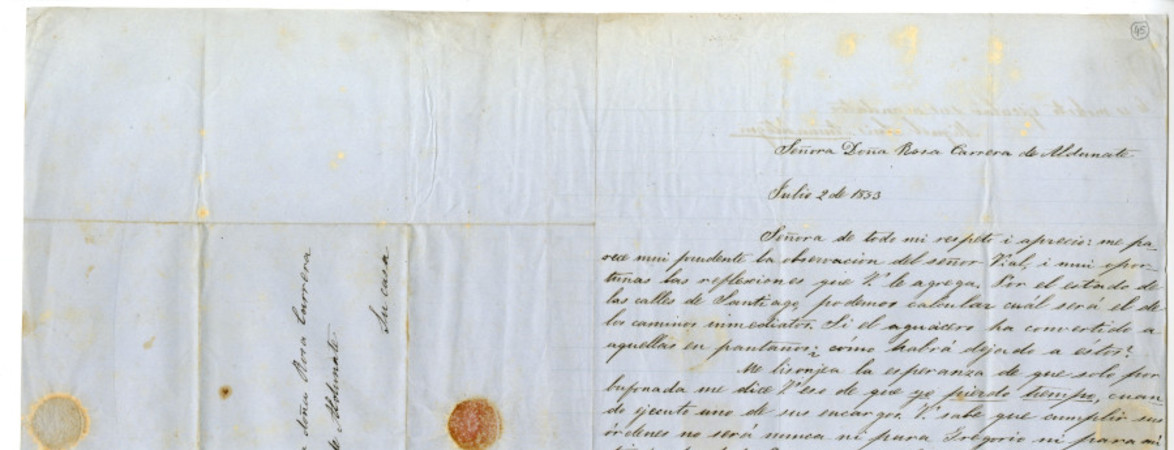 45
Señora Doña Rosa Carrera de Aldunate
Julio 2 de 1853
Señora de todo mi respeto i aprecio: me pa-
rece mui prudente la observacion del señor Vial, i mui opor-
tunas las reflexiones que V. le agrega. Por el estado de
las calles de Santiago, podemos calcular cuál será el de
los caminos inmediatos. Si el aguacero ha convertido a
aquellas en pantanos, cómo habrá dejado a éstos?
Me lisonjea la esperanza de que solo por
bufonada me dice V. eso de que yo pierdo tiempo, cuan-
do ejecuto uno de sus encargos. V. sabe que cumplir sus
órdenes no será nunca ni para Gregorio ni para mí
doña Rosa Carrera
de Aldunate
Su casa